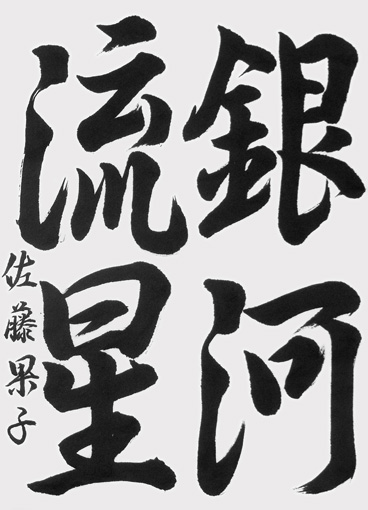 銀河
流星
佐藤果子